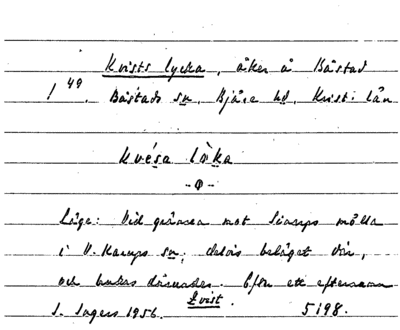 Kvists lycka, åker å Båstad
1 49. Båstads sn, Bjäre hd, Krist: län
Kvésa lòka
-0-
Läge: Vid gränsen mot Sinarps mölla
i V. Karups sn; delvis beläget där,
och brukas därunder. Efter ett efternamn
Kvist.
S. Ingers 1956. 5198.